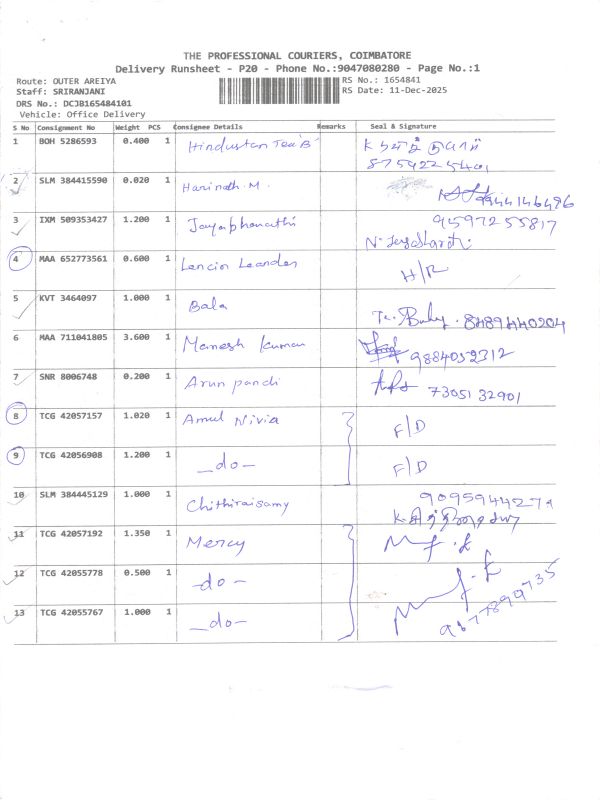 THE PROFESSIONAL COURIERS, COIMBATORE
Delivery Runsheet - P20 - Phone No.:9047080280 - Page No.:1
Route: OUTER AREIYA
Staff: SRIRANJANI
DRS No.: DCJB165484101
Vehicle: Office Delivery
RS No.: 1654841
RS Date: 11-Dec-2025
S No Consignment No Weight PCS Consignee Details Remarks Seal & Signature
1 BOH 5286593 0.400 1 Hindustan Tea'B' K
8754225401
2 SLM 384415590 0.020 1 Harinath.M. 9944146496
3 IXM 509353427 1.200 1 Jayabharathi 9597255817
N. Jeyabharathi
4 MAA 652773561 0.600 1 Lencin Leander H/R
5 KVT 3464097 1.000 1 Bala 8489440204
6 MAA 711041805 3.600 1 Manesh Kumar 9884052312
7 SNR 8006748 0.200 1 Arun pandi 7305132901
8 TCG 42057157 1.020 1 Amul Nivia F/D
9 TCG 42056908 1.200 1 -do- F/D
10 SLM 384445129 1.000 1 Chithiraisamy
11 TCG 42057192 1.350 1 Mercy
12 TCG 42055778 0.500 1 -do-
13 TCG 42055767 1.000 1 -do- 9877899735